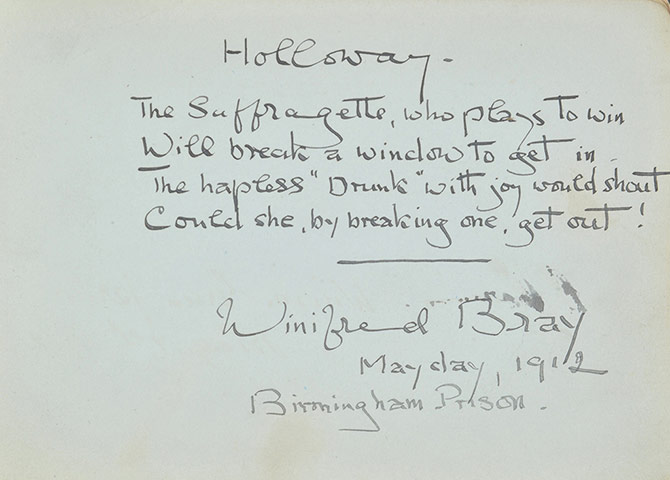 Holloway.
The Suffragette, who plays to win
Will break a window to get in.
The hapless "Drunk" with joy would shout
Could she, by breaking one, get out!
Winifred Bray
Mayday, 1912
Birmingham Prison.